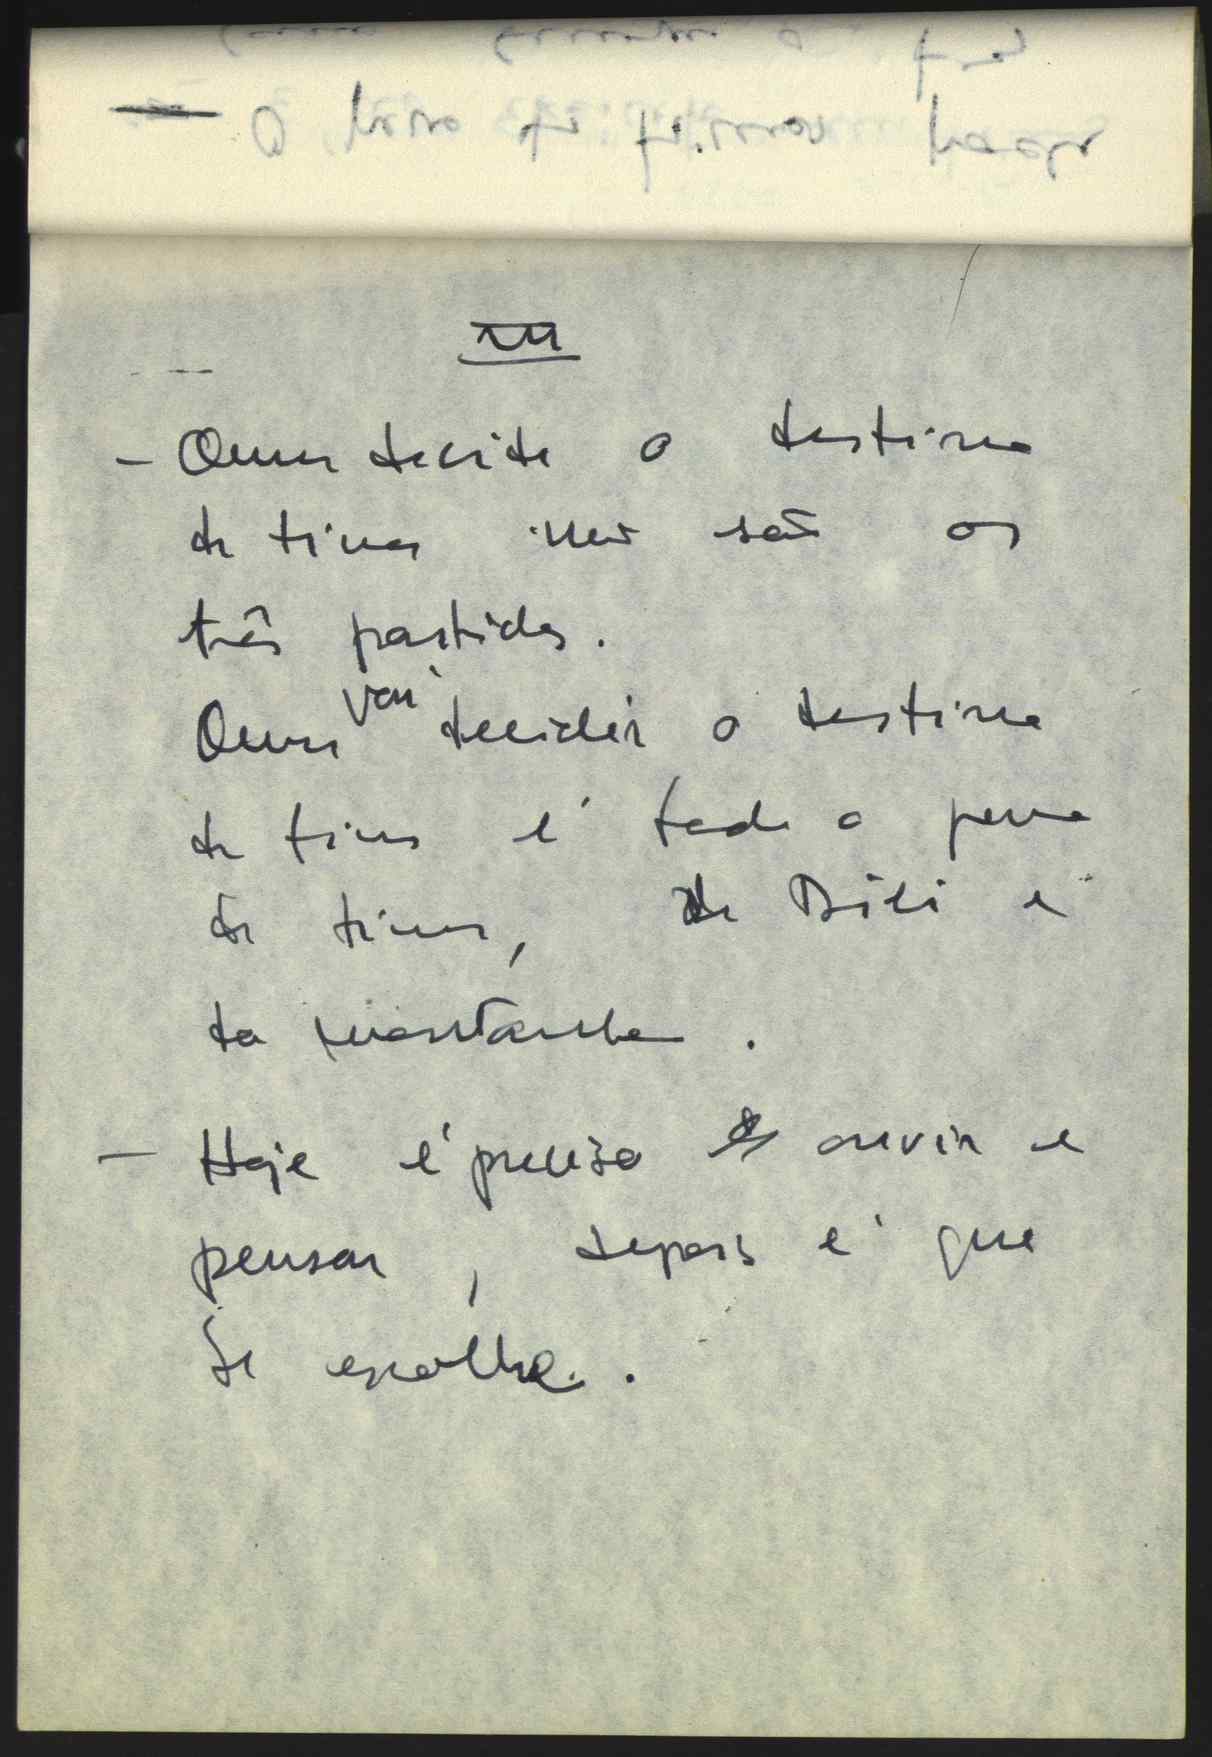 III
- Quem decide o destino
de timor não são os
três partidos.
Quem vai decidir o destino
de timor é todo o povo
de timor, de Dili e
da montanha.
- Hoje é preciso ouvir e
pensar, depois é que
se escolhe.